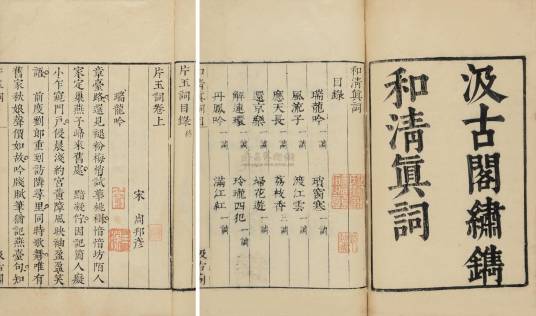 汲古閣繡鐫
和清眞詞
和清眞詞
目錄
瑞龍吟 一調 瑣窗寒 一調
風流子 一調 渡江雲 一調
應天長 一調 荔枝香 二調
還京樂 一調 掃花遊 一調
解連環 一調 玲瓏四犯 一調
丹鳳吟 一調 滿江紅 一調
汲古閣
片玉詞目錄 終
片玉詞卷上
宋 周邦彥
瑞龍吟
章臺路還見褪粉梅梢試華桃樹愔愔坊陌人
家定巢燕子歸來舊處 黯凝佇因記箇人癡
小乍窺門戶侵晨淺約宮黃障風映袖盈盈笑
語 前度劉郎重到訪隣尋里同時歌舞唯有
舊家秋娘聲價如故吟牋賦筆猶記燕臺句知
片玉詞